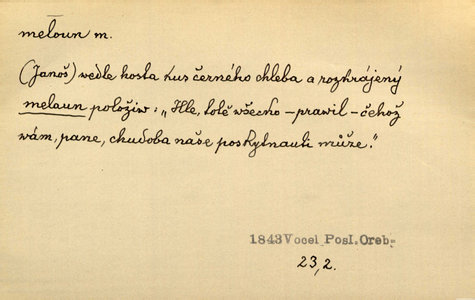 meloun m.
(Janoš) vedle hosta kus černého chleba a rozkrájený
melaun položiw: „Hle, totě wšecko – prawil – čehož
wám, pane, chudoba naše poskytnauti může."
1843 Vocel Posl. Oreb.
23, 2.